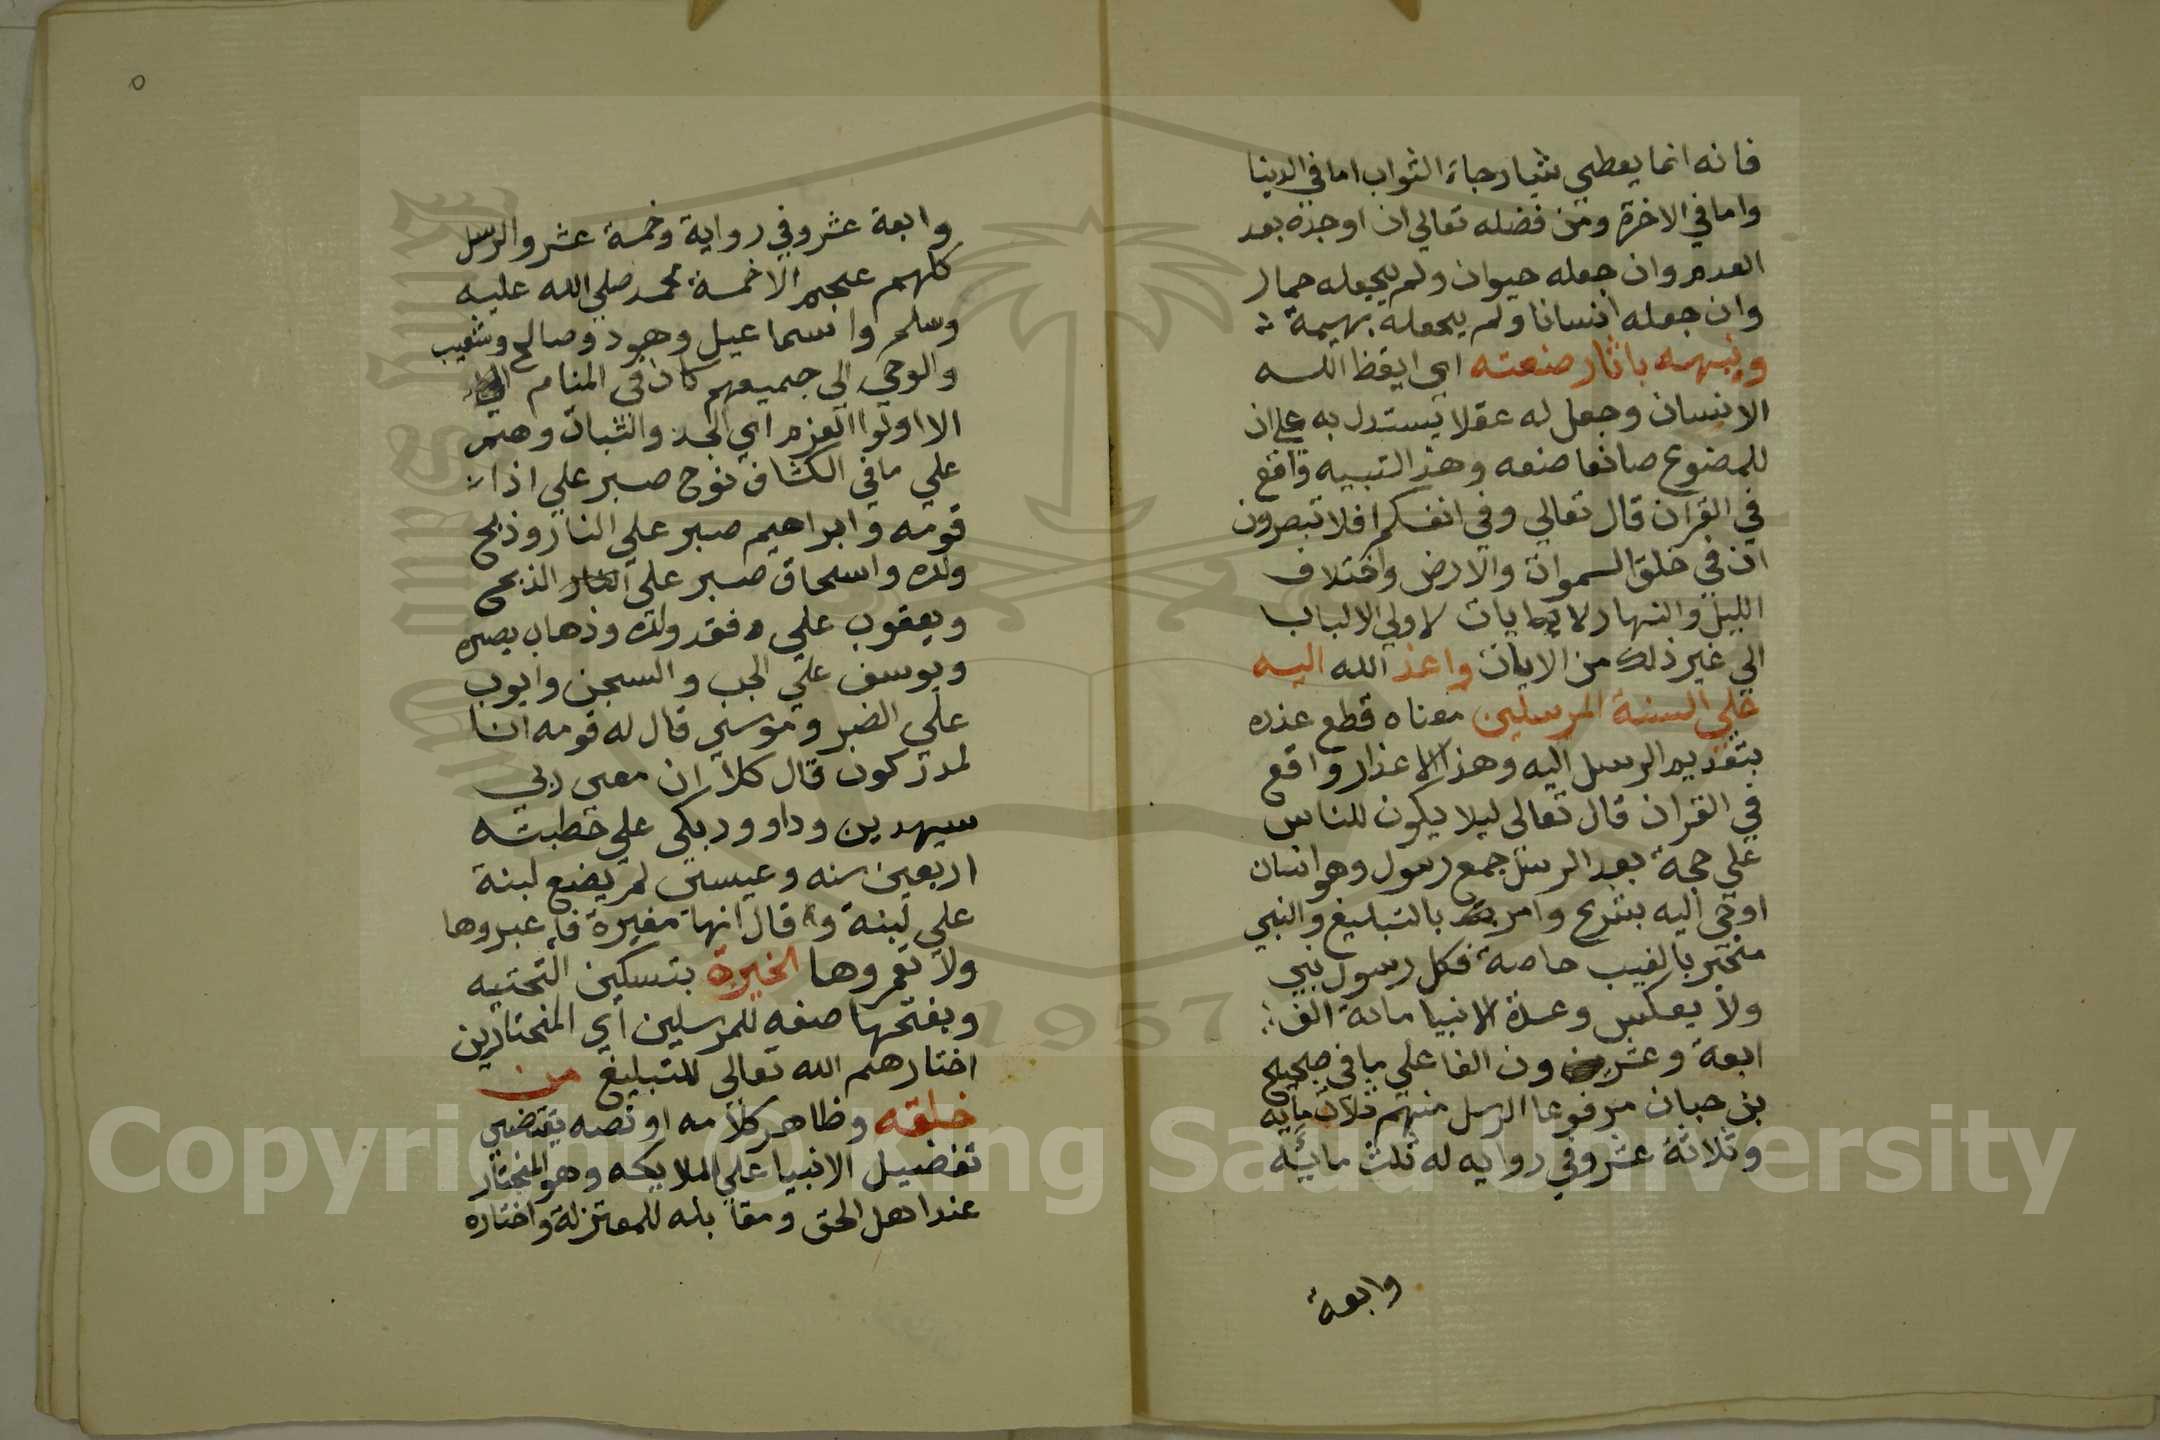 فانه انما يعطي شيا رجاء الثواب اما في الدنيا
واما في الاخرة ومن فضله تعالي ان اوجده بعد
العدم وان جعله حيوان ولم يجعله حمار
وان جعله انسانا ولم يجعله بهيمة
ونبهه باثار صنعته اي ايقظ الله
الانسان وجعل له عقلا يستدل به علي ان
للمصنوع صانعا صنعه وهذا التبيه واقع
في القران قال تعالي وفي انفسكم افلا تبصرون
ان في خلق السموات والارض واختلاف
الليل والنهار لايات لاولي الالباب
الي غير ذلك من الايات واعذ الله اليه
علي السنة المرسلين معناه قطع عذره
بتقديم الرسل اليه وهذا الاعذار واقع
في القران قال تعالى ليلا يكون للناس
علي حجة بعد الرسل جمع رسول وهو انسان
اوحي اليه بشرع وامر بالتبليغ والنبي
مخبر بالغيب خاصة فكل رسول نبي
ولا يعكس وعدة الانبيا ماءة الف
ابعة وعشرون الفا علي ما في صحيح
بن حبان مرفوعا الرسل منهم ثلاث مايه
وثلاثة عشر وفي روايه له ثلث مائية
وابعة
٥
وابعة عشر وفي رواية وخمسة عشر والرسل
كلهم عجم الا خمسة محمد صلي الله عليه
وسلم واسماعيل وهود وصالح وشعيب
والوحي الي جميعهم كان في المنام
الا اولوا العزم اي الجد والثبات وهم
علي ما في الكشاف نوح صبر علي اذا
قومه وابراهيم صبر علي النار وذبح
ولده واسحاق صبر علي الذبح
ويعقوب علي فقد ولده وذهاب بصره
ويوسف علي الجب والسجن وايوب
علي الضر وموسي قال له قومه انا
لمدركون قال كلا ان معي ربي
سيهدين وداوود بكي علي خطبته
اربعين سنه وعيسي لم يضع لبنة
علي لبنة وقال انها مغيرة فاعبروها
ولا تعمروها الخيرة بتسكين التحتيه
وبفتحها صفه للمرسلين اي المختارين
اختارهم الله تعالى للتبليغ من
خلقه وظاهر كلامه او نصه يقتضي
تفضيل الانبيا علي الملايكه وهو المختار
عند اهل الحق ومقابله للمعتزلة واختاره
1957
Copyright © King Saud University